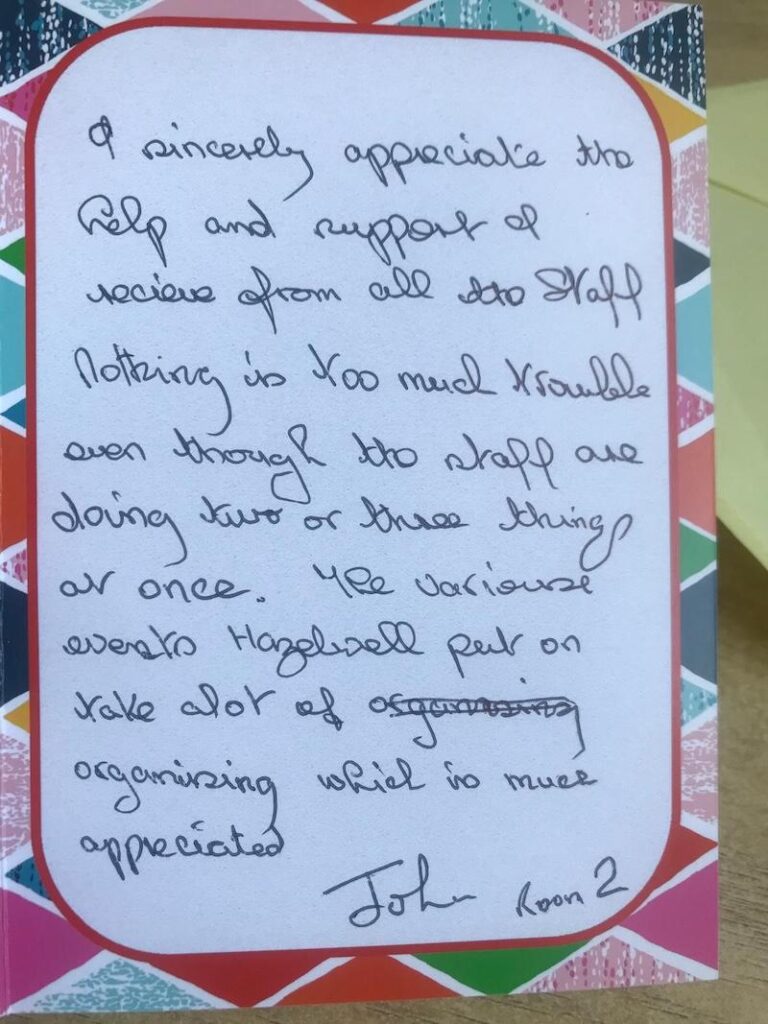 I sincerely appreciate the
help and support I
recieve from all the Staff
Nothing is too much trouble
even though the staff are
doing two or three things
at once. The variouse
events Hazelwell put on
take alot of organising
organising which is much
appreciated
John Room 2